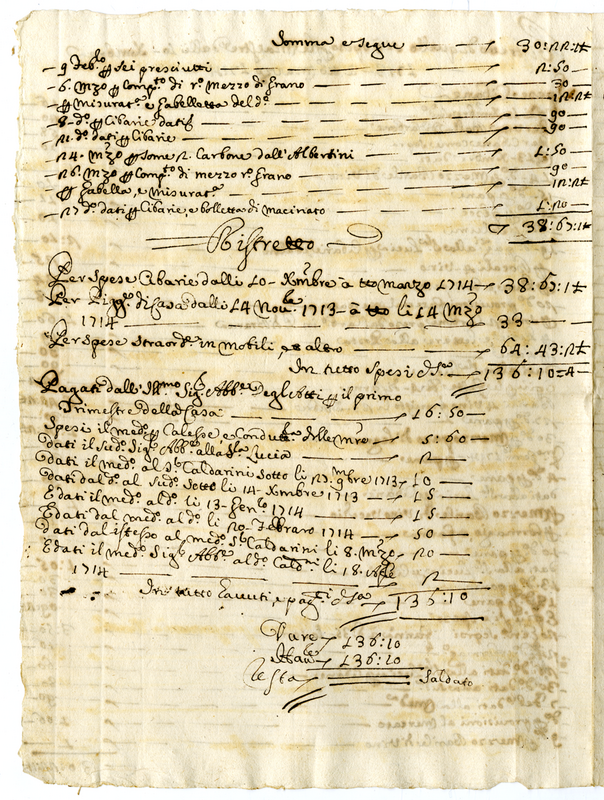 Somma e segue — 30:22:½
— 9 Feb.º p sei presciutti — 2:50 —
— 6. Mzo p Comp.to di r.º mezzo di grano — 30 —
— p misurat.a e gabelletta del d.º — 12:½
— 8 — d.º p Cibarie dati — 90 —
— 21. d.º dati p Cibarie — 90 —
— 24. Mzo p some 2. Carbone dall'Albertini — 1:50 —
— 26. Mzo p Comp.to di mezzo r.º grano — 90 —
— p gabella, e misurat.a — 12:½
— 27 d.º dati p Cibarie, e bolletta di macinato — 1:20 —
38:67:½
Ristretto
Per spese Cibarie dalli 10 - Xmbre à tto marzo 1714 — 38:67:½
Per Pig.e di Casa dalli 14 Nov.e 1713 — à tto li 14 Mzo
1714 — 33 —
Per spese straord.e in mobili, et altro — 64:43:½
In tutto spesi — 136:10 —
Pagati dall'Ill.mo Sig.r Abb.e degl'Atti p il primo
Trimestre della Casa — 16:50 —
Spesi il med.º p Calesse, e Condutt.a delle — 5:60 —
Dati il sud.º Sig.r Abb.e alla Lucia — 2 —
Dati il med.º al S.r Caldarini sotto li 27. 9bre 1713 — 10 —
Dati dal d.º al sud.º sotto li 14 - Xmbre 1713 — 15 —
E dati il med.º al d.º li 13 - Gen.o 1714 — 15 —
E dati dal med.º al d.º li 20 - Febraro 1714 — 50 —
Dati dal istesso al med.º S.r Caldarini li 8. Mzo — 20 —
E dati il med.º Sig.r Abb.e al d.º Cald.ni li 18. Aple
1714 — 2
In tutto havuti, e pag.ti — 136:10
Dare — 136:10
Have — 136:10
Resta — Saldato